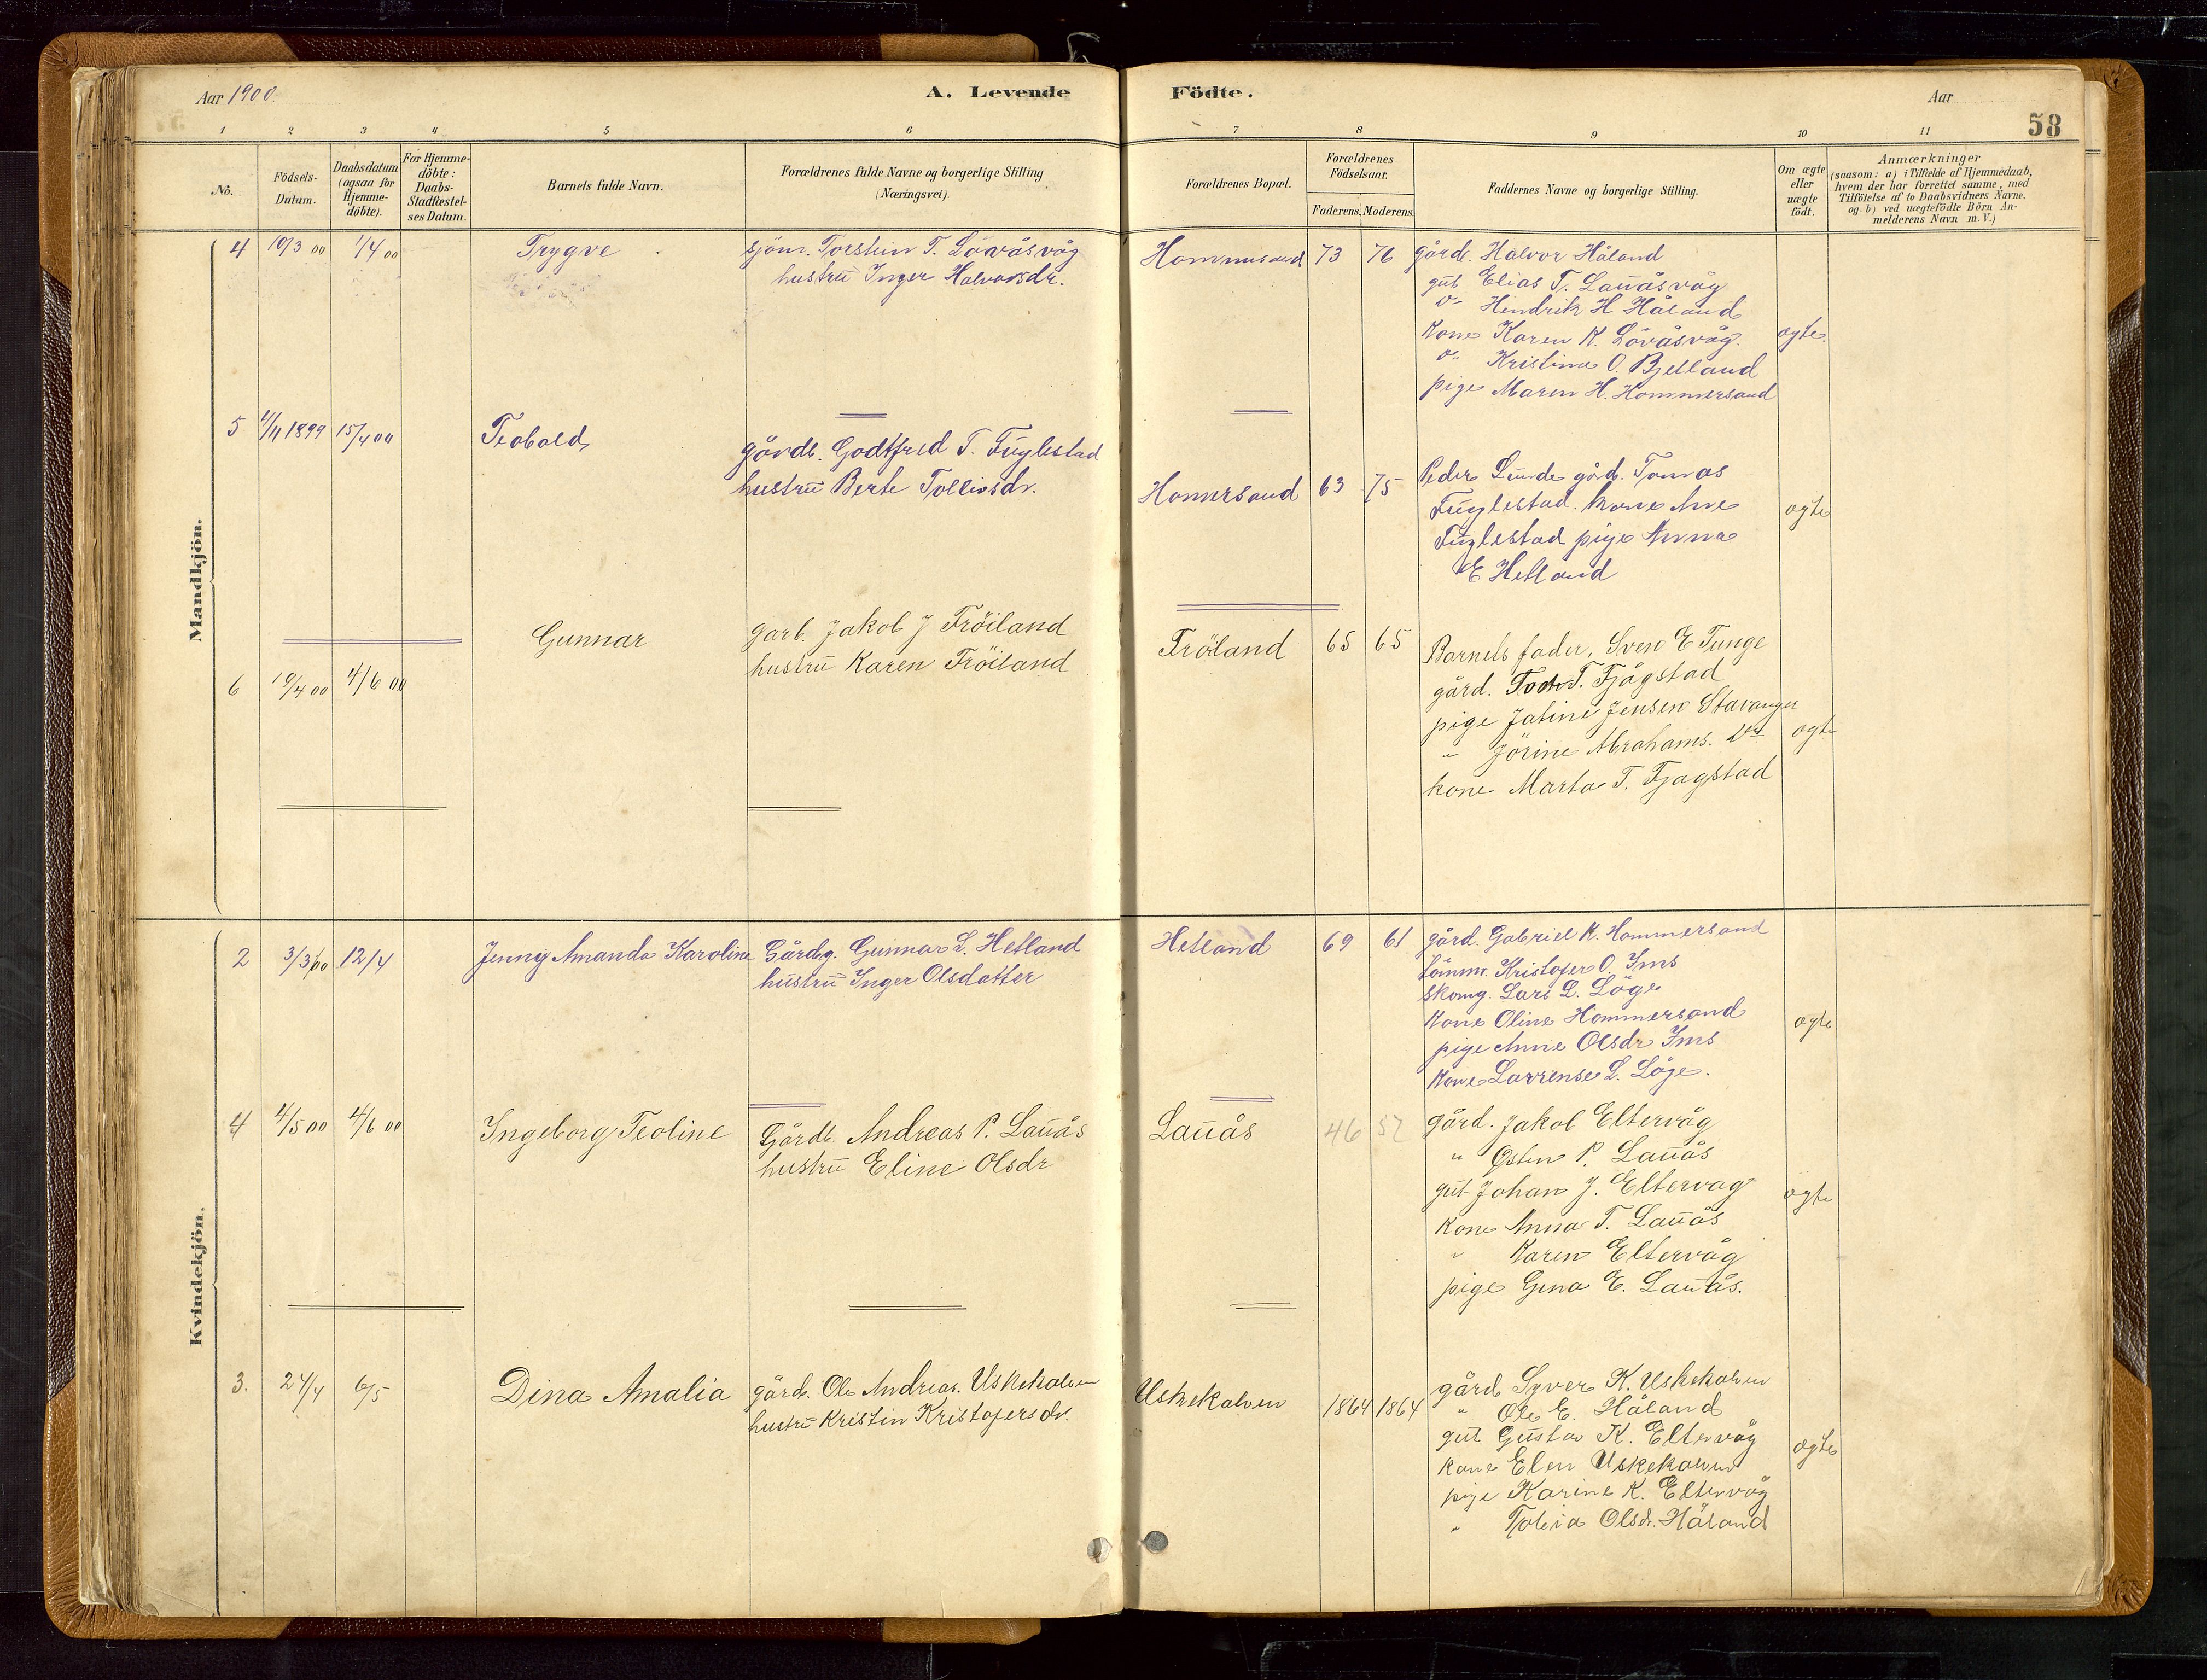 Aar 1900.
A. Levende
Födte.
Aar
58
1 2 3 4 5 6 7 8 9 10 11
No.
Födsels-
Datum.
Daabsdatum
(ogsaa for
Hjemme-
döbte).
For Hjemme-
döbte:
Daabs-
Stadfæstel-
ses Datum.
Barnets fulde Navn.
Forældrenes fulde Navne og borgerlige Stilling
(Næringsvei).
Forældrenes Bopæl.
Forældrenes
Födselsaar.
Faderens. Moderens.
Faddernes Navne og borgerlige Stilling.
Om ægte
eller
uægte
födt.
Anmærkninger
(saasom: a) i Tilfælde af Hjemmedaab,
hvem der har forrettet samme, med
Tilföielse af to Daabsvidners Navne.
og b) ved uægtefödte Börn An-
melderens Navn m. V.)
Mandkjön.
4 10/3 00 1/4 00 Trygve
sjöm. Torstein T. Lovåsvåg
hustrū Inger Halvorsdr.
Hommersand 73 76
gård. Halvor Håland
gut Elias T. Lauåsvåg
do Hendrik H Håland
Kone Karen K. Lovåsvåg.
do Kristine O. Bjelland
pige Maren H. Hommersand
ægte.
5 4/11 1899 15/4 00 Teobald
gårdb. Godtfred T. Fuglestad
hustrū Berte Tolleivsdr.
Homersand 63 75
Peder Lunde gård. Tomas
Fuglestad. Kone Ane
Fuglestad pige Anna
E Hetland
ægte
6 10/4 00 4/6 00 Gunnar
garb. Jakob J Fröiland
hustrū Karen Fröiland
Fröiland 65 65
Barnets fader, Sven E Tunge
gård. T. Fjågstad
pige Jatine Jensen Stavanger
" Jörine Abrahams. do
kone Marta T. Fjagstad
ægte
Kvindekjön.
2 3/3 00 12/4 Jenny Amanda Karoline
Gårdg. Gunnar L. Hetland
hustrū Inger Olsdatter
Hetland 69 61
gård. Gabriel K. Hommersand
tömmr. Kristofer O. Ims
Skomg. Lars L. Löge
Kone Oline Hommersand
pige Anne Olsdr Ims
Kone Lavrense L. Löge.
ægte
4 4/5 00 4/6 00 Ingeborg Teoline
Gårdb. Andreas P. Lauås
hustrū Eline Olsdr
Lauås 46 52
gård. Jakob Eltervåg
" Osten P. Lauås
gut Johan J. Eltervag
Kone Anna T. Lauås
" Karen Eltervåg
pige Gina E. Lauås.
ægte
3. 24/4 6/5 Dina Amalia
gård. Ole Andreas. Uskekalven
hustrū Kristin Kristofersdr.
Uskekalven 1864 1864
gård Syver K. Uskekalven
" Ole E. Håland
gut Gustav K. Eltervåg
kone Elen Uskekalven
pige Karine K. Eltervåg
" Olsdr. Håland
ægte